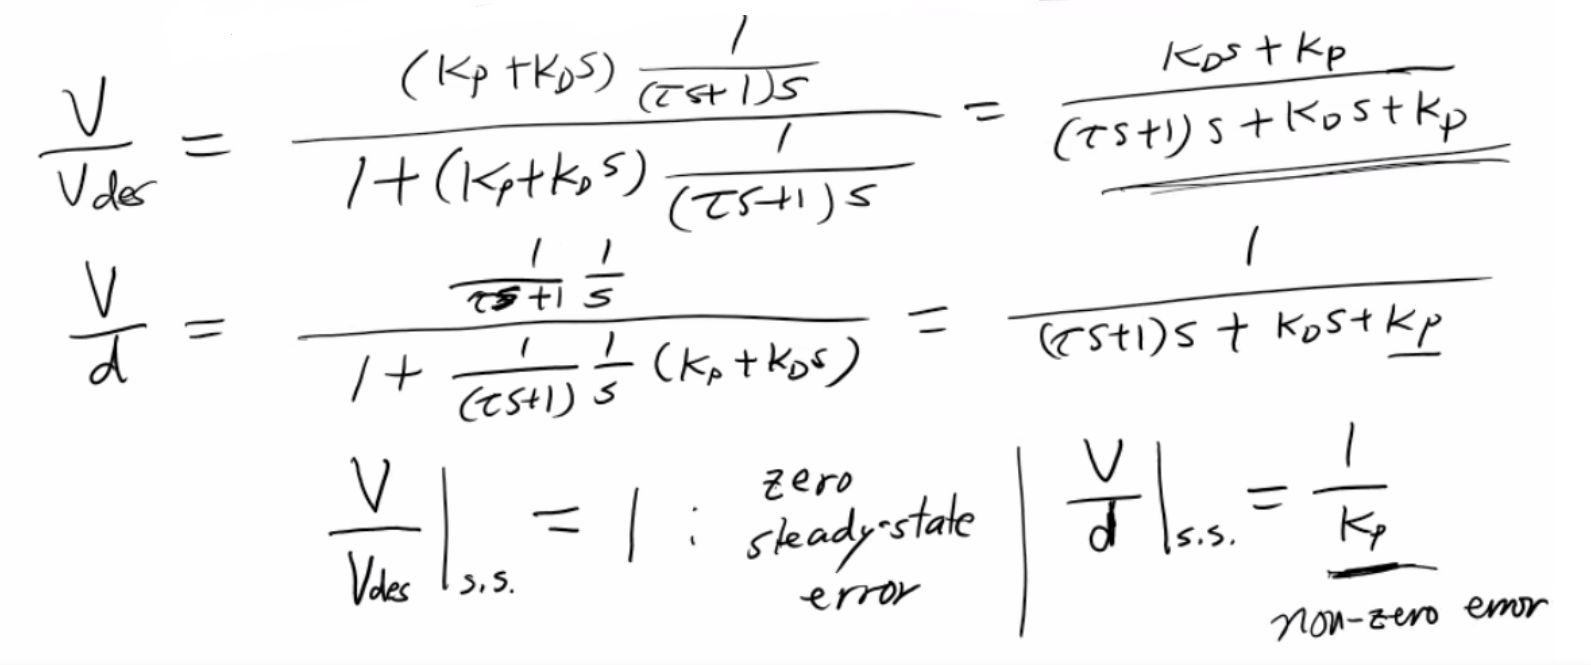 V/V_des = ((K_P + K_D s) 1/((τs+1)s)) / (1 + (K_P + K_D s) 1/((τs+1)s)) = (K_D s + K_P) / ((τs+1)s + K_D s + K_P)
V/d = (1/(τs+1) 1/s) / (1 + 1/(τs+1) 1/s (K_P + K_D s)) = 1 / ((τs+1)s + K_D s + K_P)
V/V_des |_s.s. = 1 : zero steady-state error | V/d |_s.s. = 1/K_P non-zero error